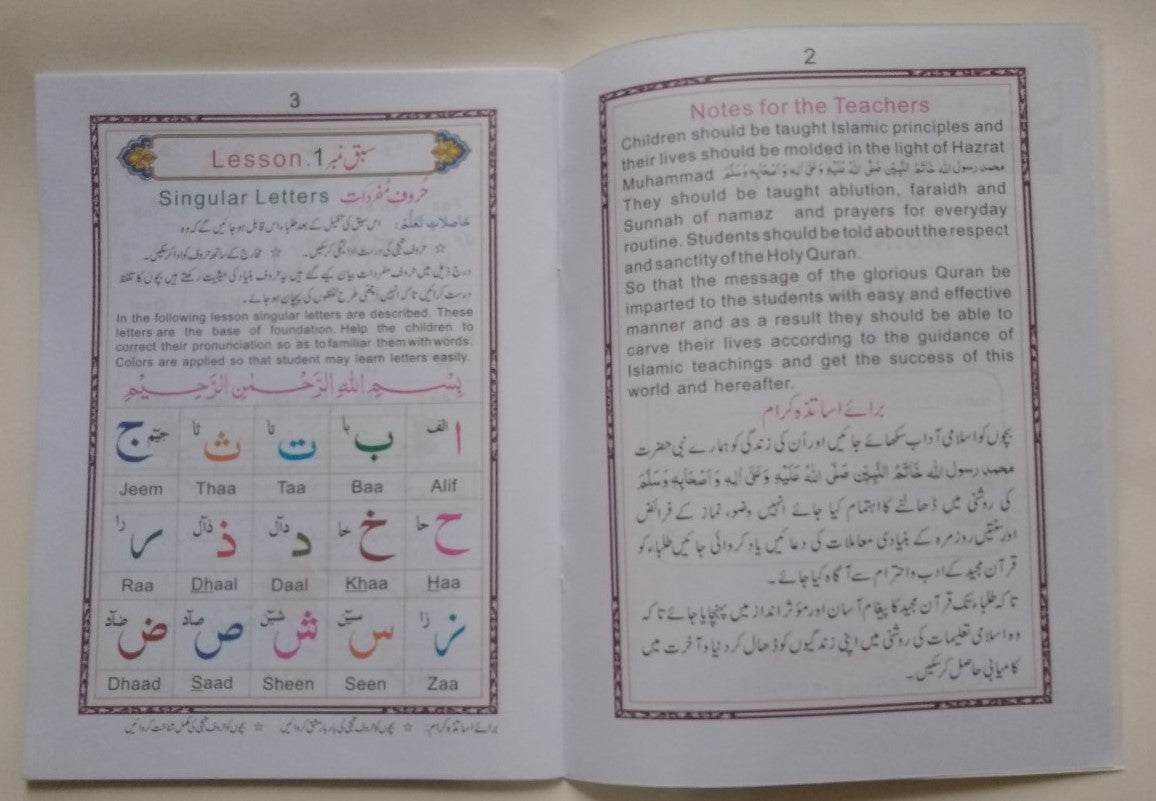 2
Notes for the Teachers
Children should be taught Islamic principles and
their lives should be molded in the light of Hazrat
Muhammad محمد رسول الله خَاتَمُ النَّبِيّٖن صَلَّى اللهُ عَلَيْهِ وَعَلىٰ اٰلِهٖ وَاَصْحَابِهٖ وَسَلَّمَ
They should be taught ablution, faraidh and
Sunnah of namaz and prayers for everyday
routine. Students should be told about the respect
and sanctity of the Holy Quran.
So that the message of the glorious Quran be
imparted to the students with easy and effective
manner and as a result they should be able to
carve their lives according to the guidance of
Islamic teachings and get the success of this
world and hereafter.
برائے اساتذہ کرام
بچوں کو اسلامی آداب سکھائے جائیں اور اُن کی زندگی کو ہمارے نبی حضرت
محمد رسول الله خَاتَمُ النَّبِيّٖن صَلَّى اللهُ عَلَيْهِ وَعَلىٰ اٰلِهٖ وَاَصْحَابِهٖ وَسَلَّمَ
کی روشنی میں ڈھالنے کا اہتمام کیا جائے انہیں وضو، نماز کے فرائض
اور سنتیں روزمرہ کے بنیادی معاملات کی دعائیں یاد کروائی جائیں طلباء کو
قرآن مجید کے ادب و احترام سے آگاہ کیا جائے۔
تاکہ طلباء تک قرآن مجید کا پیغام آسان اور مؤثر انداز میں پہنچایا جائے تاکہ
وہ اسلامی تعلیمات کی روشنی میں اپنی زندگیوں کو ڈھال کر دنیا و آخرت میں
کامیابی حاصل کر سکیں۔
3
Lesson.1 سبق نمبر
Singular Letters حُروفِ مُفرَدَات
حَاصِلاتِ تَعَلُّم: اس سبق کی تکمیل کے بعد طلباء اس قابل ہو جائیں گے کہ وہ:
☆ حروف تہجی کی درست ادائیگی کر سکیں۔ ☆ مخارج کے ساتھ حروف کو ادا کر سکیں۔
درج ذیل میں حروف مفردات بیان کیے گئے ہیں یہ حروف بنیاد کی حیثیت رکھتے ہیں بچوں کا تلفظ
درست کرائیں تاکہ انہیں اچھی طرح لفظوں کی پہچان ہو جائے۔
In the following lesson singular letters are described. These
letters are the base of foundation. Help the children to
correct their pronunciation so as to familiar them with words.
Colors are applied so that student may learn letters easily.
بِسْمِ اللهِ الرَّحْمٰنِ الرَّحِيْمِ
ا الف ب با ت تا ث ثا ج جیم
Alif Baa Taa Thaa Jeem
ح حا خ خا د دال ذ ذال ر را
Haa Khaa Daal Dhaal Raa
ز زا س سین ش شین ص صاد ض ضاد
Zaa Seen Sheen Saad Dhaad
برائے اساتذہ کرام: ☆ بچوں کو حروف تہجی کی بار بار مشق کروائیں ☆ بچوں کو حروف تہجی کی مکمل شناخت کروائیں